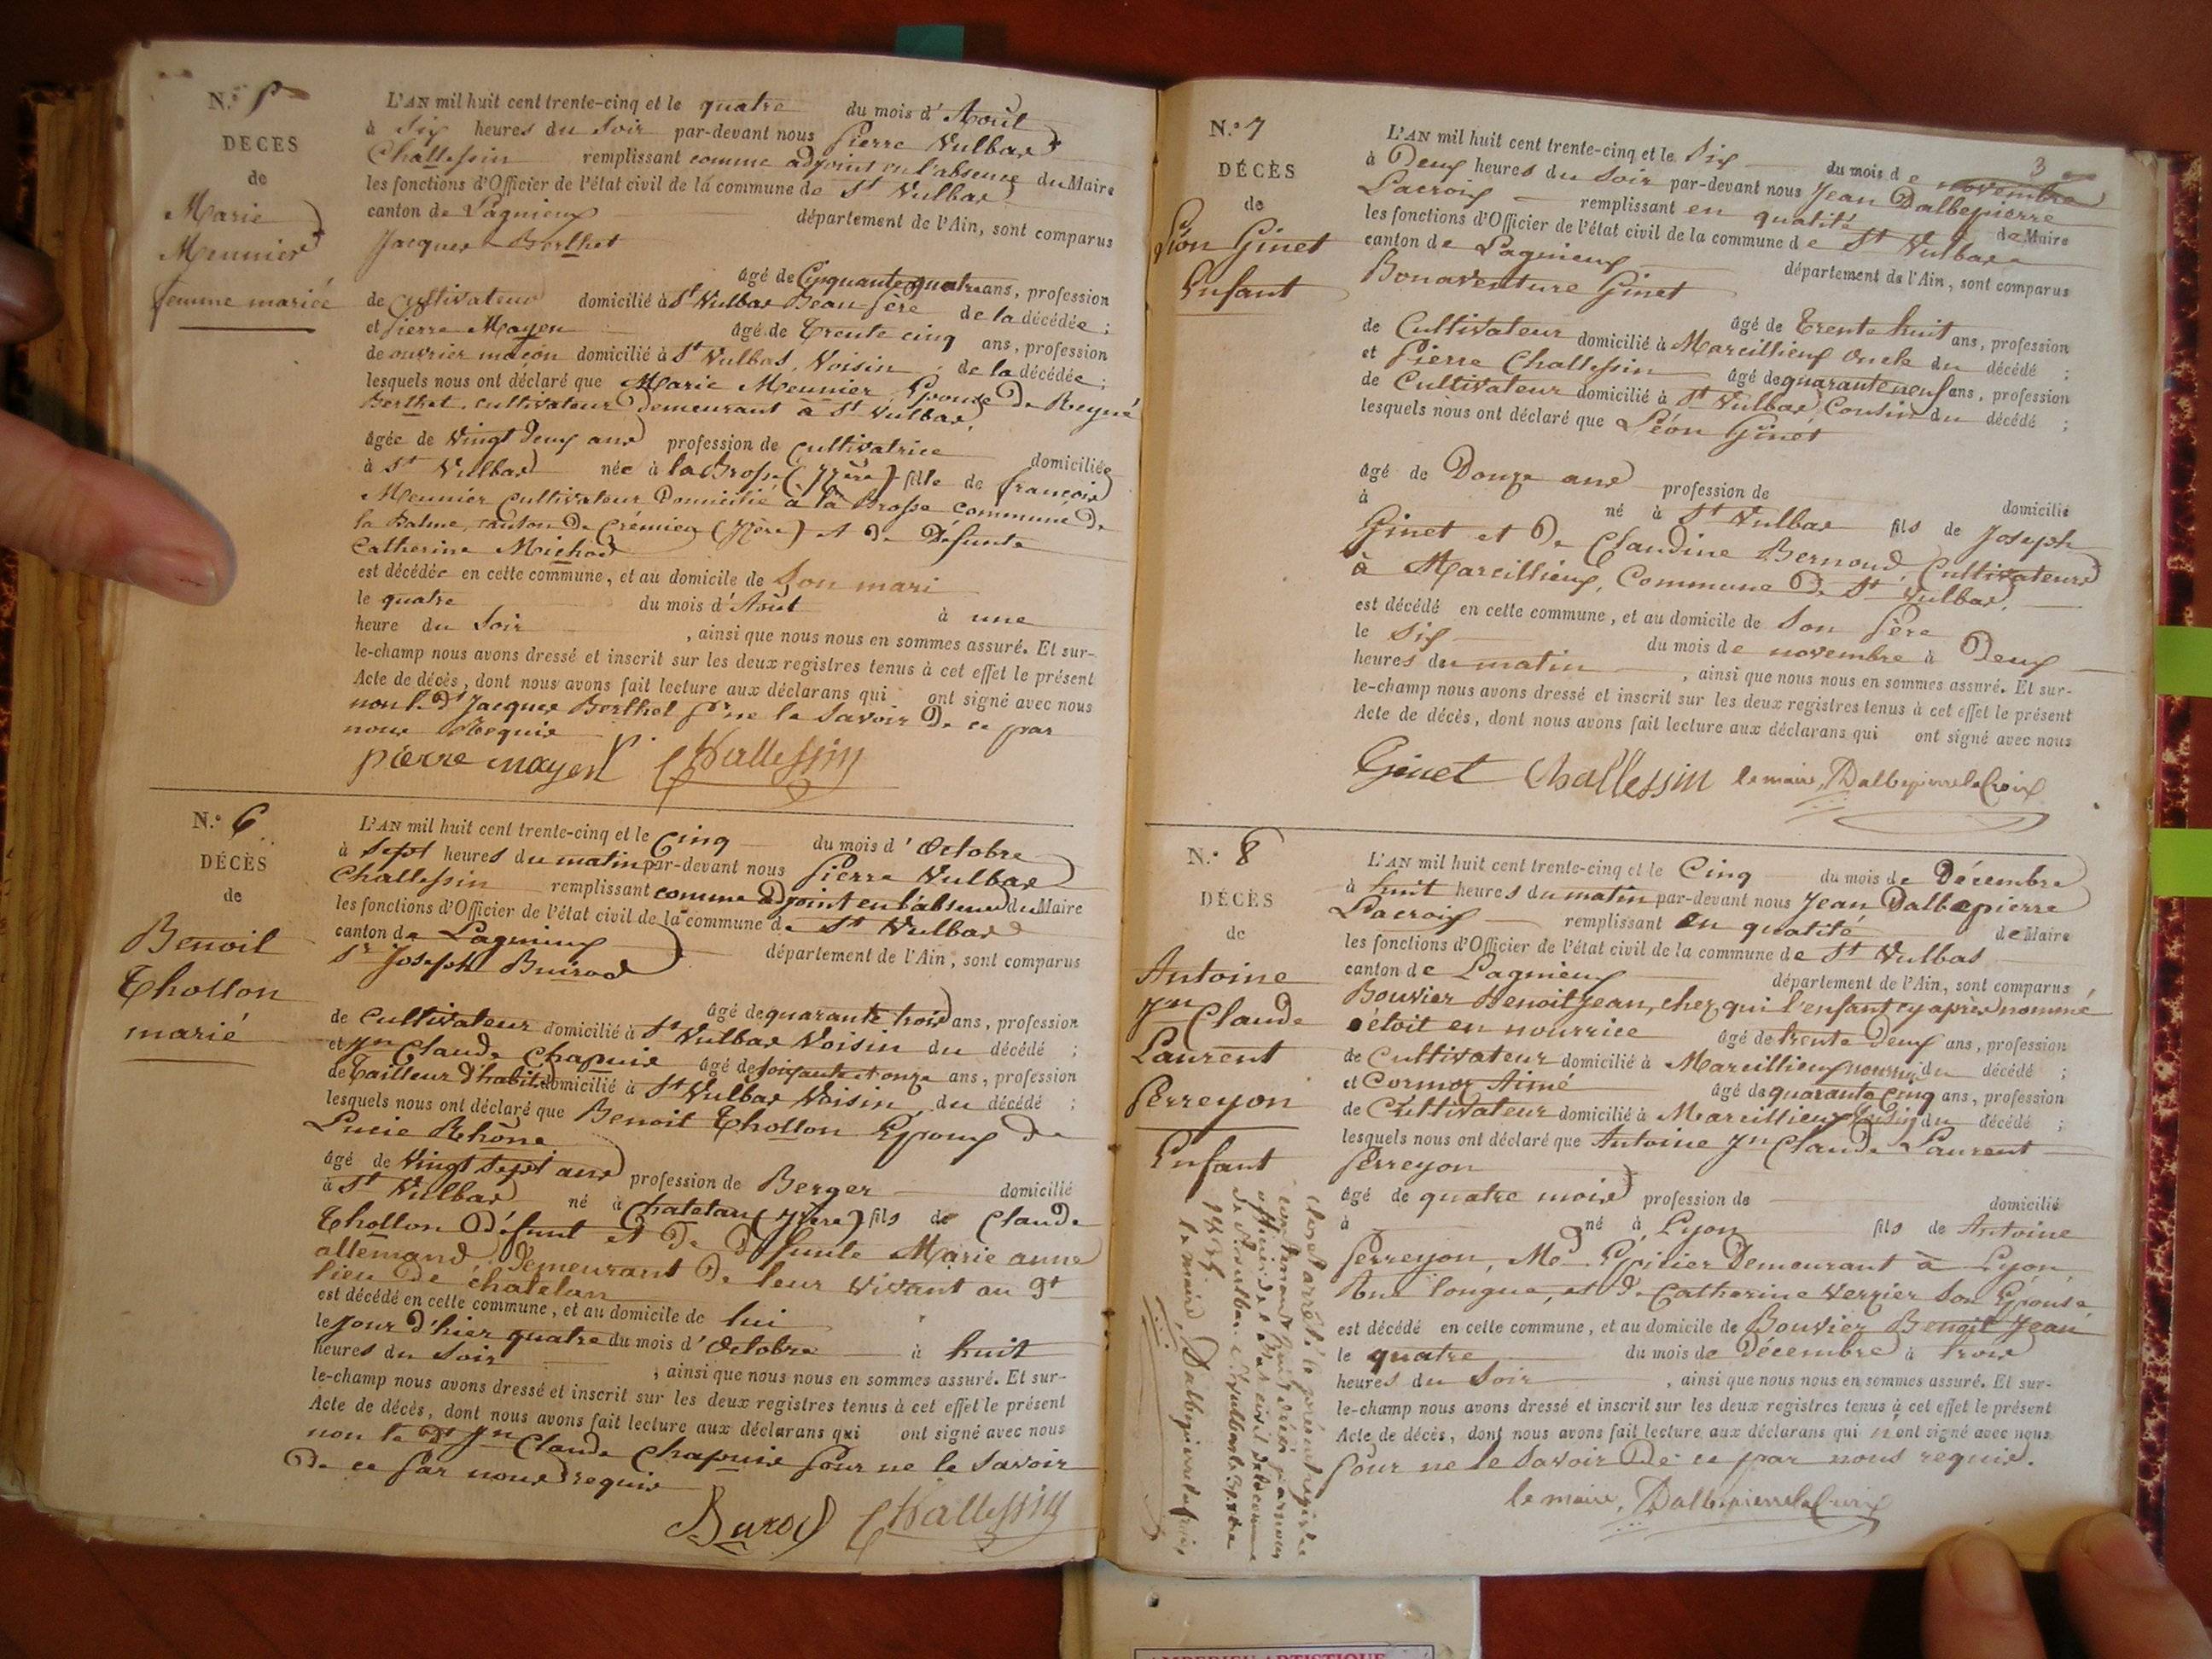 N.° 5
DÉCÈS
de
Marie
Meunier
femme mariée
L'AN mil huit cent trente-cinq et le quatre du mois d'Août
à Six heures du Soir par-devant nous Pierre Vulbas
Challessin remplissant comme adjoint en l'absence du Maire
les fonctions d'Officier de l'état civil de la commune de St Vulbas
canton de Lagnieux département de l'Ain, sont comparus
Jacques Berthet
âgé de Cinquante quatre ans, profession
de Cultivateur domicilié à St Vulbas Beau père de la décédée ;
et Pierre Mayen âgé de Trente cinq ans, profession
de ouvrier maçon domicilié à St Vulbas, Voisin de la décédée ;
lesquels nous ont déclaré que Marie Meunier, Epouse de
Berthet, cultivateur demeurant à St Vulbas,
âgée de Vingt deux ans profession de Cultivatrice domiciliée
à St Vulbas née à la Brosse (Isère) fille de françois
Meunier Cultivateur Domicilié à la Brosse commune de
la Balme, canton de Crémieu (Isère) et de Défunte
Catherine Michod
est décédée en cette commune, et au domicile de Son mari
le quatre du mois d'Août à une
heure du Soir , ainsi que nous nous en sommes assuré. Et sur-
le-champ nous avons dressé et inscrit sur les deux registres tenus à cet effet le présent
Acte de décès, dont nous avons fait lecture aux déclarans qui ont signé avec nous
non le dt Jacques Berthet pr ne le Savoir De ce par
nous Requis
pierre mayen Challessin
N.° 6
DÉCÈS
de
Benoit
Thollon
marié
L'AN mil huit cent trente-cinq et le Cinq du mois d'Octobre
à Sept heures du matin par-devant nous Pierre Vulbas
Challessin remplissant comme adjoint en l'absence du Maire
les fonctions d'Officier de l'état civil de la commune de St Vulbas
canton de Lagnieux département de l'Ain, sont comparus
Sr Joseph Buirod
âgé de quarante trois ans, profession
de Cultivateur domicilié à St Vulbas Voisin du décédé ;
et Jn Claude Chapuis âgé de soixante et onze ans, profession
de Tailleur d'habit domicilié à St Vulbas Voisin du décédé ;
lesquels nous ont déclaré que Benoit Thollon Epoux de
Lucie Rhône
âgé de Vingt Sept ans profession de Berger domicilié
à St Vulbas né à Chatelan (Isère) fils de Claude
Thollon Défunt et De Défunte Marie anne
allemand, Demeurant De leur Vivant au dt
lieu De chatelan
est décédé en cette commune, et au domicile de lui
le jour d'hier quatre du mois d'Octobre à huit
heures du Soir , ainsi que nous nous en sommes assuré. Et sur-
le-champ nous avons dressé et inscrit sur les deux registres tenus à cet effet le présent
Acte de décès, dont nous avons fait lecture aux déclarans qui ont signé avec nous
non le dt Jn Claude Chapuis pour ne le Savoir
De ce par nous requis
Burod Challessin
3
N.° 7
DÉCÈS
de
Léon Ginet
Enfant
L'AN mil huit cent trente-cinq et le Six du mois de novembre
à Deux heures du Soir par-devant nous Jean Dalbepierre
Lacroix remplissant en qualité de Maire
les fonctions d'Officier de l'état civil de la commune de St Vulbas
canton de Lagnieux département de l'Ain, sont comparus
Bonaventure Ginet
âgé de Trente huit ans, profession
de Cultivateur domicilié à Marcillieux Oncle du décédé ;
et Pierre Challessin âgé de quarante neuf ans, profession
de Cultivateur domicilié à St Vulbas Cousin du décédé ;
lesquels nous ont déclaré que Léon Ginet
âgé de Douze ans profession de domicilié
à né à St Vulbas fils de Joseph
Ginet et De Claudine Bernoud, Cultivateurs
à Marcillieux, Commune De St Vulbas,
est décédé en cette commune, et au domicile de Son Père
le Six du mois de novembre à Deux
heures du matin , ainsi que nous nous en sommes assuré. Et sur-
le-champ nous avons dressé et inscrit sur les deux registres tenus à cet effet le présent
Acte de décès, dont nous avons fait lecture aux déclarans qui ont signé avec nous
Ginet Challessin le maire, Dalbepierre laCroix
N.° 8
DÉCÈS
de
Antoine
Jn Claude
Laurent
Perreyon
Enfant
L'AN mil huit cent trente-cinq et le Cinq du mois de Décembre
à huit heures du matin par-devant nous Jean Dalbepierre
Lacroix remplissant en qualité de Maire
les fonctions d'Officier de l'état civil de la commune de St Vulbas
canton de Lagnieux département de l'Ain, sont comparus
Bouvier Benoit Jean, chez qui l'enfant cy après nommé
étoit en nourrice âgé de trente Deux ans, profession
de Cultivateur domicilié à Marcillieux du décédé ;
et Cormoz Aimé âgé de quarante Cinq ans, profession
de Cultivateur domicilié à Marcillieux du décédé ;
lesquels nous ont déclaré que Antoine Jn Claude Laurent
Perreyon
âgé de quatre mois profession de domicilié
à né à Lyon fils de Antoine
Perreyon, Md Epicier Demeurant à Lyon,
Rue longue, et de Catherine Verzier Son Epouse
est décédé en cette commune, et au domicile de Bouvier Benoit Jean
le quatre du mois de Décembre à trois
heures du Soir , ainsi que nous nous en sommes assuré. Et sur-
le-champ nous avons dressé et inscrit sur les deux registres tenus à cet effet le présent
Acte de décès, dont nous avons fait lecture aux déclarans qui n'ont signé avec nous
Pour ne le Savoir De ce par nous requis.
le maire, Dalbepierre laCroix
Clos et arrêté le présent registre
contenant huit décès par nous
officier de l'état civil de la commune
de St Vulbas
le maire, Dalbepierre lacroix
AMBERIEU ARTISTIQUE